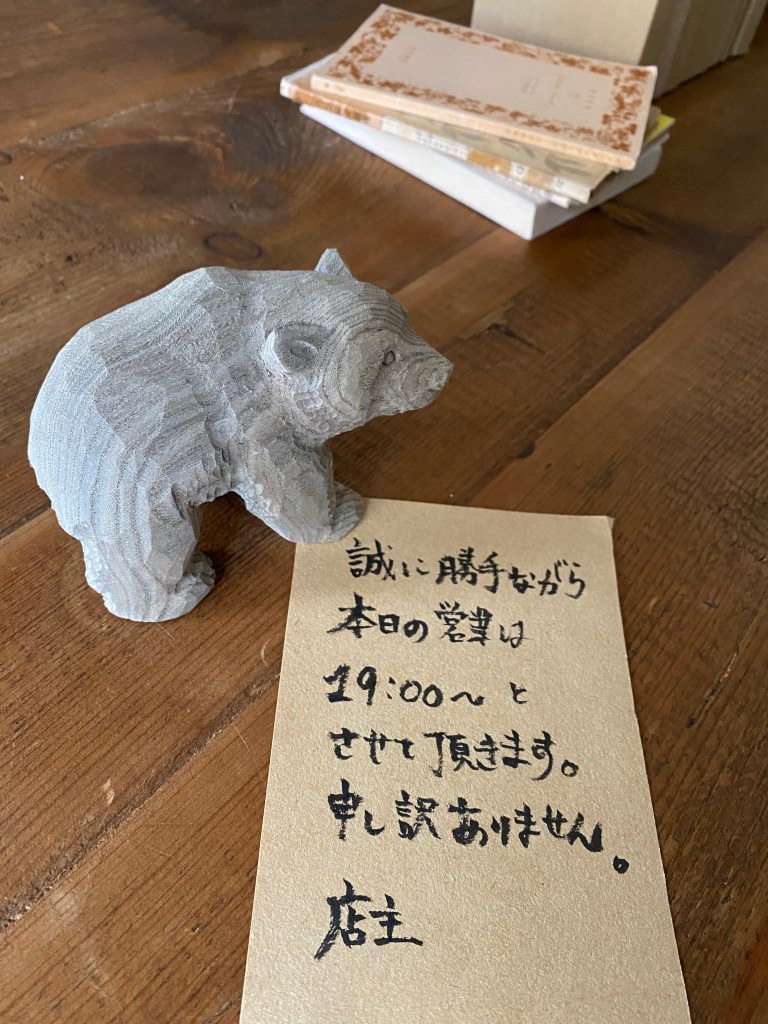 誠に勝手ながら
本日の営業は
19:00〜と
させて頂きます。
申し訳ありません。
店主